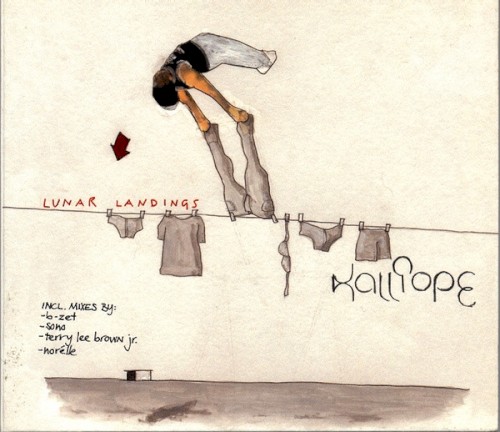 LUNAR LANDINGS
Kalliope
INCL. MIXES BY:
-b-zet
-sono
-terry lee brown jr.
-norélle